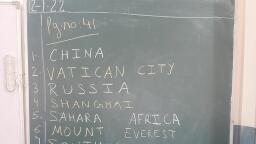 2-1-22
Pg.no:41
1. CHINA
2 VATICAN CITY
3 RUSSIA
4 SHANGHAI
5. SAHARA AFRICA
6 MOUNT EVEREST
7 SOUTH